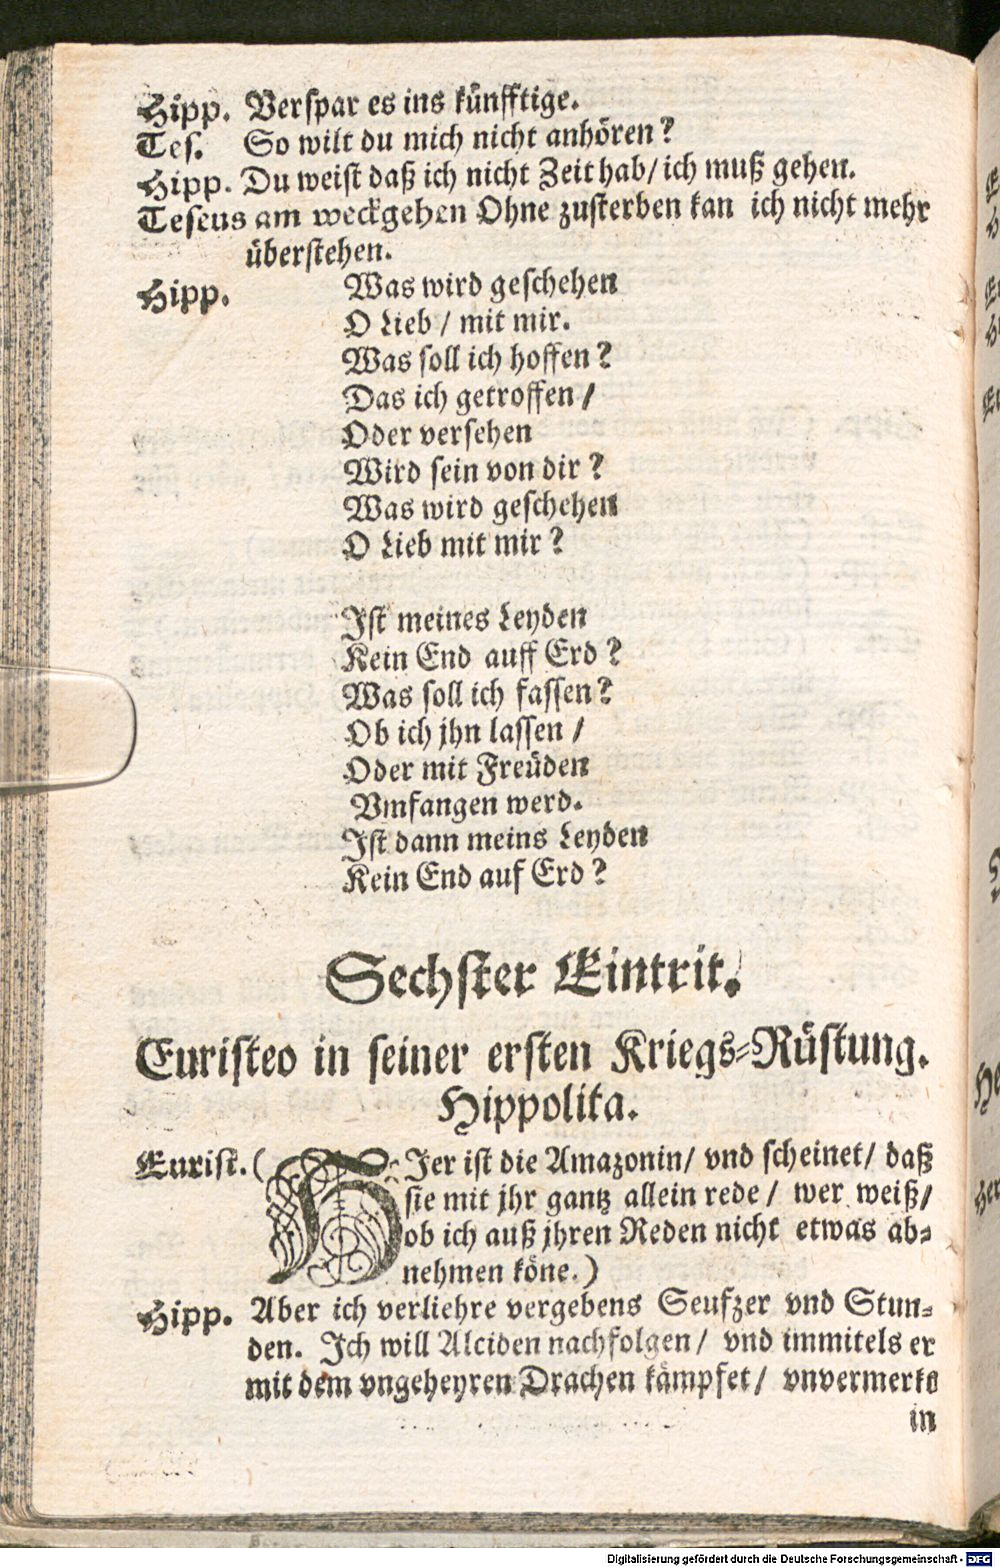 Hipp. Verspar es ins künfftige.
Tes. So wilt du mich nicht anhören?
Hipp. Du weist daß ich nicht Zeit hab/ ich muß gehen.
Teseus am weckgehen Ohne zusterben kan ich nicht mehr
überstehen.
Hipp. Was wird geschehen
O Lieb / mit mir.
Was soll ich hoffen?
Das ich getroffen /
Oder versehen
Wird sein von dir?
Was wird geschehen
O Lieb mit mir?
Ist meines Leyden
Kein End auff Erd?
Was soll ich fassen?
Ob ich jhn lassen /
Oder mit Freüden
Vmfangen werd.
Ist dann meins Leyden
Kein End auf Erd?
Sechster Eintrit.
Euristeo in seiner ersten Kriegs-Rüstung.
Hippolita.
Eurist. (HIer ist die Amazonin/ vnd scheinet/ daß
sie mit jhr gantz allein rede / wer weiß/
ob ich auß jhren Reden nicht etwas ab-
nehmen köne.)
Hipp. Aber ich verliehre vergebens Seufzer vnd Stun-
den. Ich will Alciden nachfolgen/ vnd immitels er
mit dem vngeheyren Drachen kämpfet/ vnvermerkt
in
Digitalisierung gefördert durch die Deutsche Forschungsgemeinschaft - DFG